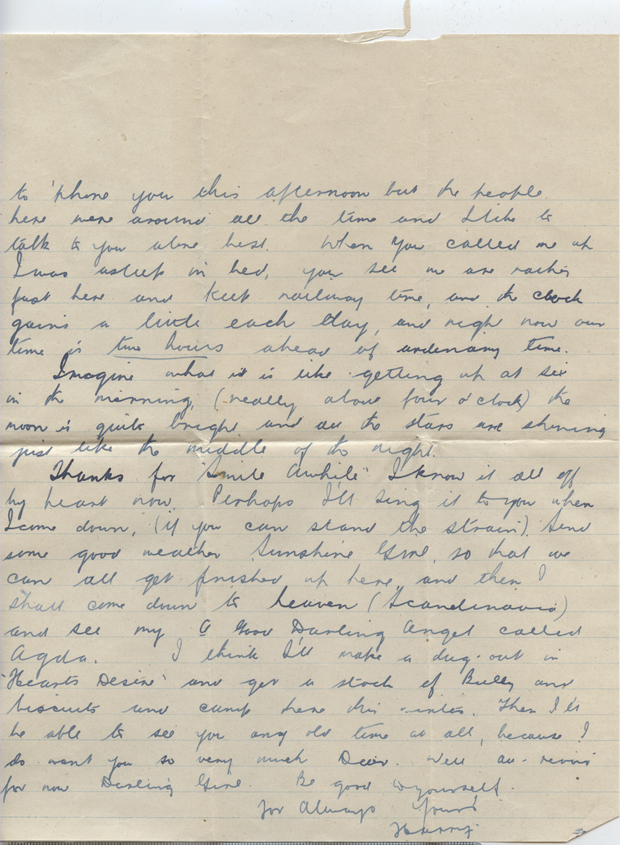 to 'phone you this afternoon but the people
here were around all the time and I like to
talk to you alone best. When you called me up
I was asleep in bed, you see we are rather
fast here and keep railway time, and the clock
gains a little each day, and right now our
time is two hours ahead of ordenary time.
Imagine what it is like getting up at six
in the morning, (really about four o'clock) the
moon is quite bright and all the stars are shining
just like the middle of the night.
Thanks for "Smile Awhile" I know it all off
by heart now. Perhaps I'll sing it to you when
I come down, (if you can stand the strain). Send
some good weather Sunshine Girl, so that we
can all get finished up here and then I
shall come down to heaven (Scandinavia)
and see my Good Darling Angel called
Agda. I think I'll make a dug-out in
'Hearts Desire' and get a stock of Bully and
biscuits and camp there this winter. Then I'll
be able to see you any old time at all, because I
do want you so very much Dear. Well au-revoir
for now Darling Girl. Be good to yourself.
For Always Yours
Harry